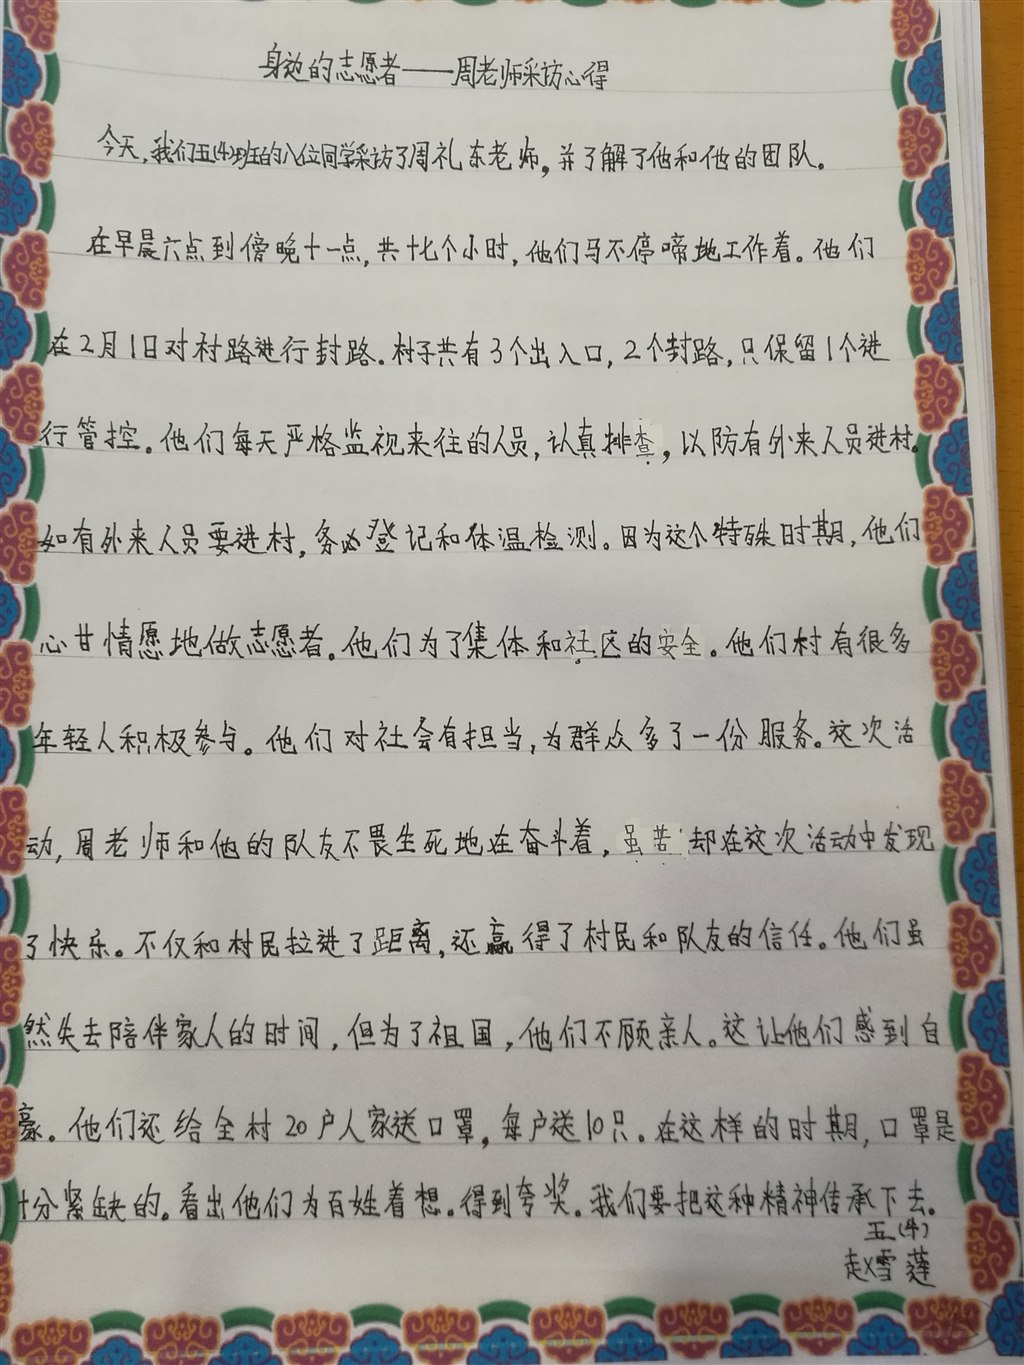 身边的志愿者——周老师采访心得
今天，我们五(4)班的八位同学采访了周礼东老师，并了解了他和他的团队。
在早晨六点到傍晚十一点，共十七个小时，他们马不停啼地工作着。他们
在2月1日对村路进行封路。村子共有3个出入口，2个封路，只保留1个进
行管控。他们每天严格监视来往的人员，认真排查，以防有外来人员进村。
如有外来人员要进村，务必登记和体温检测。因为这个特殊时期，他们
心甘情愿地做志愿者。他们为了集体和社区的安全。他们村有很多
年轻人积极参与。他们对社会有担当，为群众多了一份服务。这次活
动，周老师和他的队友不畏生死地在奋斗着，虽苦却在这次活动中发现
了快乐。不仅和村民拉进了距离，还赢得了村民和队友的信任。他们虽
然失去陪伴家人的时间，但为了祖国，他们不顾亲人。这让他们感到自
豪。他们还给全村20户人家送口罩，每户送10只。在这样的时期，口罩是
十分紧缺的。看出他们为百姓着想。得到夸奖。我们要把这种精神传承下去。
五(4)
赵雪莲